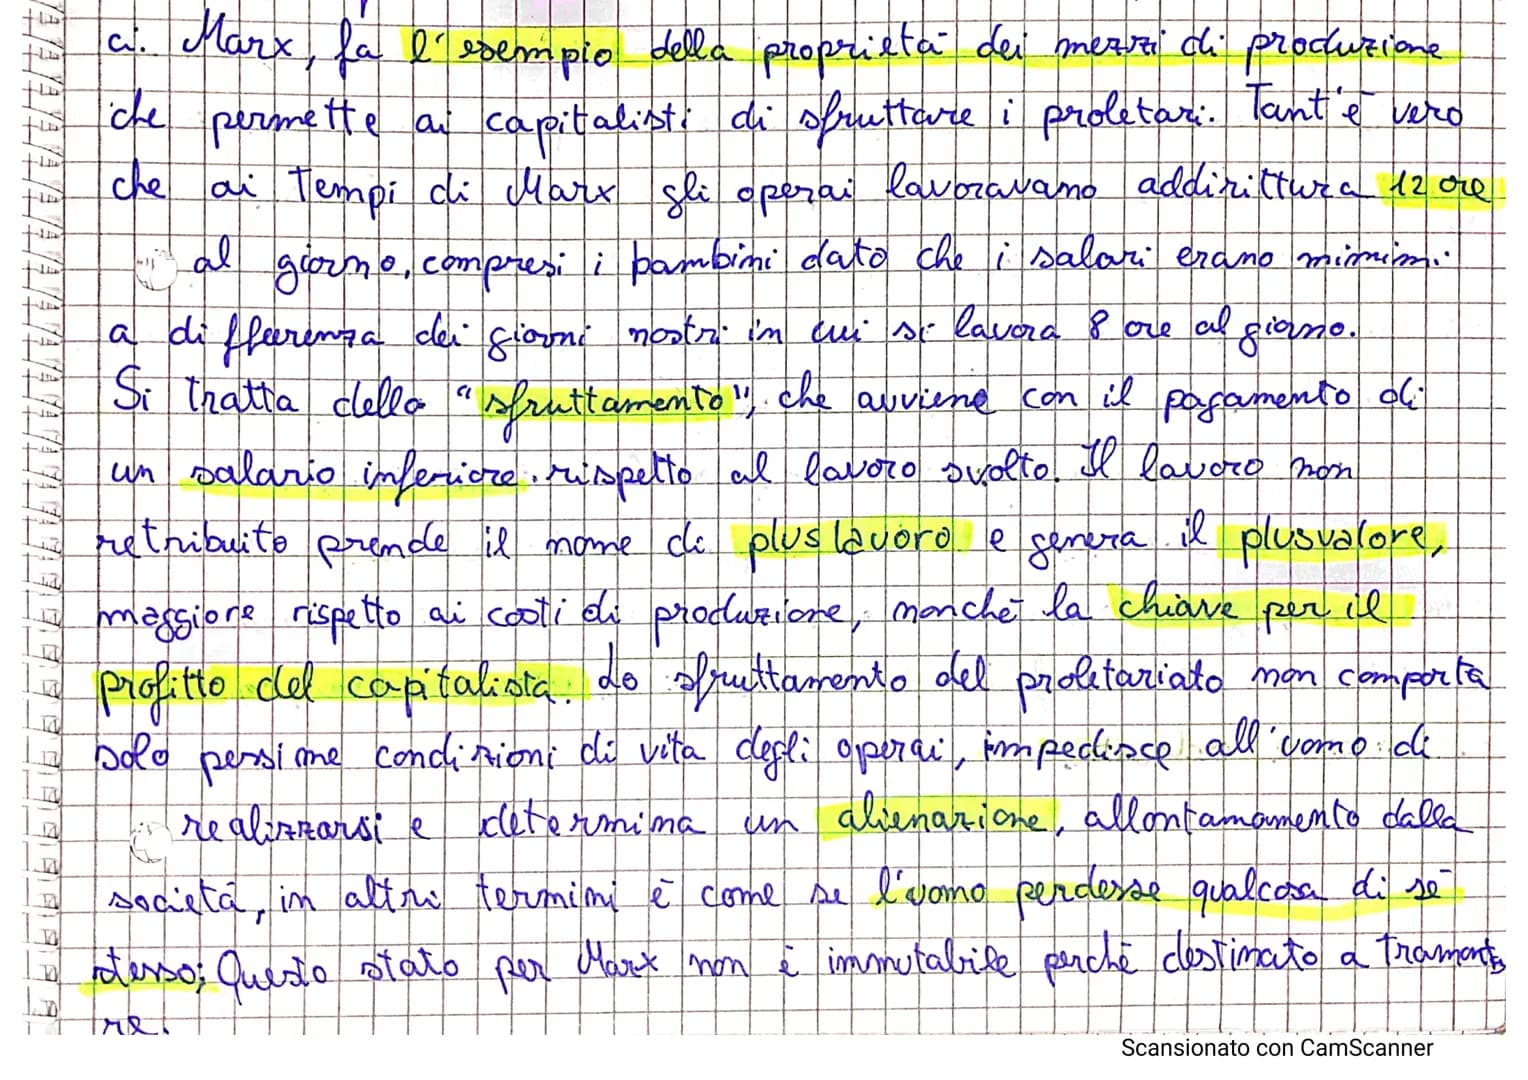 ci. Marx, fa l'esempio della proprietà dei mezzi di produzione
che permette ai capitalisti di sfruttare i proletari. Tant'è vero
che ai tempi di Marx gli operai lavoravano addirittura 12 ore
al giorno, compresi i bambini dato che i salari erano minimi..
a differenza dei giorni nostri in cui si lavora 8 ore al giorno.
Si tratta dello "sfruttamento", che avviene con il pagamento di
un salario inferiore rispetto al lavoro svolto. Il lavoro non
retribuito prende il nome di pluslavoro e genera il plusvalore,
maggiore rispetto ai costi di produzione, nonchè la chiave per il
profitto del capitalista. Lo sfruttamento del proletariato non comporta
solo pessime condizioni di vita degli operai, impedisce all'uomo di
realizzarsi e determina un alienazione, allontanamento dalla
società, in altri termini è come se l'uomo perdesse qualcosa di sè
stesso; Questo stato per Marx non è immutabile perchè destinato a tramonta
re.
Scansionato con CamScanner